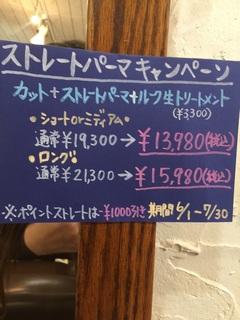 ストレートパーマキャンペーン
カット+ストレートパーマ+ルク生トリートメント
(¥3300)
•ショートorミディアム•
通常¥19,300→¥13,980(税込)
•ロング•
通常¥21,300→¥15,980(税込)
※ポイントストレートは-¥1000引き 期間6/1~7/30